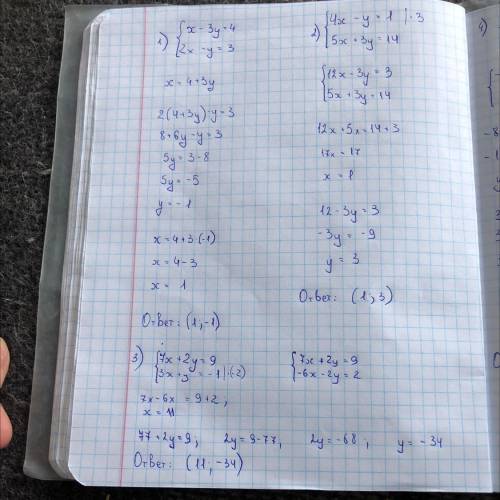 1) { x - 3y = 4
2x - y = 3
x = 4 + 3y
2(4 + 3y) - y = 3
8 + 6y - y = 3
5y = 3 - 8
5y = -5
y = -1
x = 4 + 3·(-1)
x = 4 - 3
x = 1
Ответ: (1; -1)
2) { 4x - y = 1 |·3
5x + 3y = 14
{ 12x - 3y = 3
5x + 3y = 14
12x + 5x = 14 + 3
17x = 17
x = 1
12 - 3y = 3
-3y = -9
y = 3
Ответ: (1; 3)
3) { 7x + 2y = 9
3x + y = -1 |·(-2)
{ 7x + 2y = 9
-6x - 2y = 2
7x - 6x = 9 + 2;
x = 11
77 + 2y = 9; 2y = 9 - 77; 2y = -68; y = -34
Ответ: (11; -34)
4)